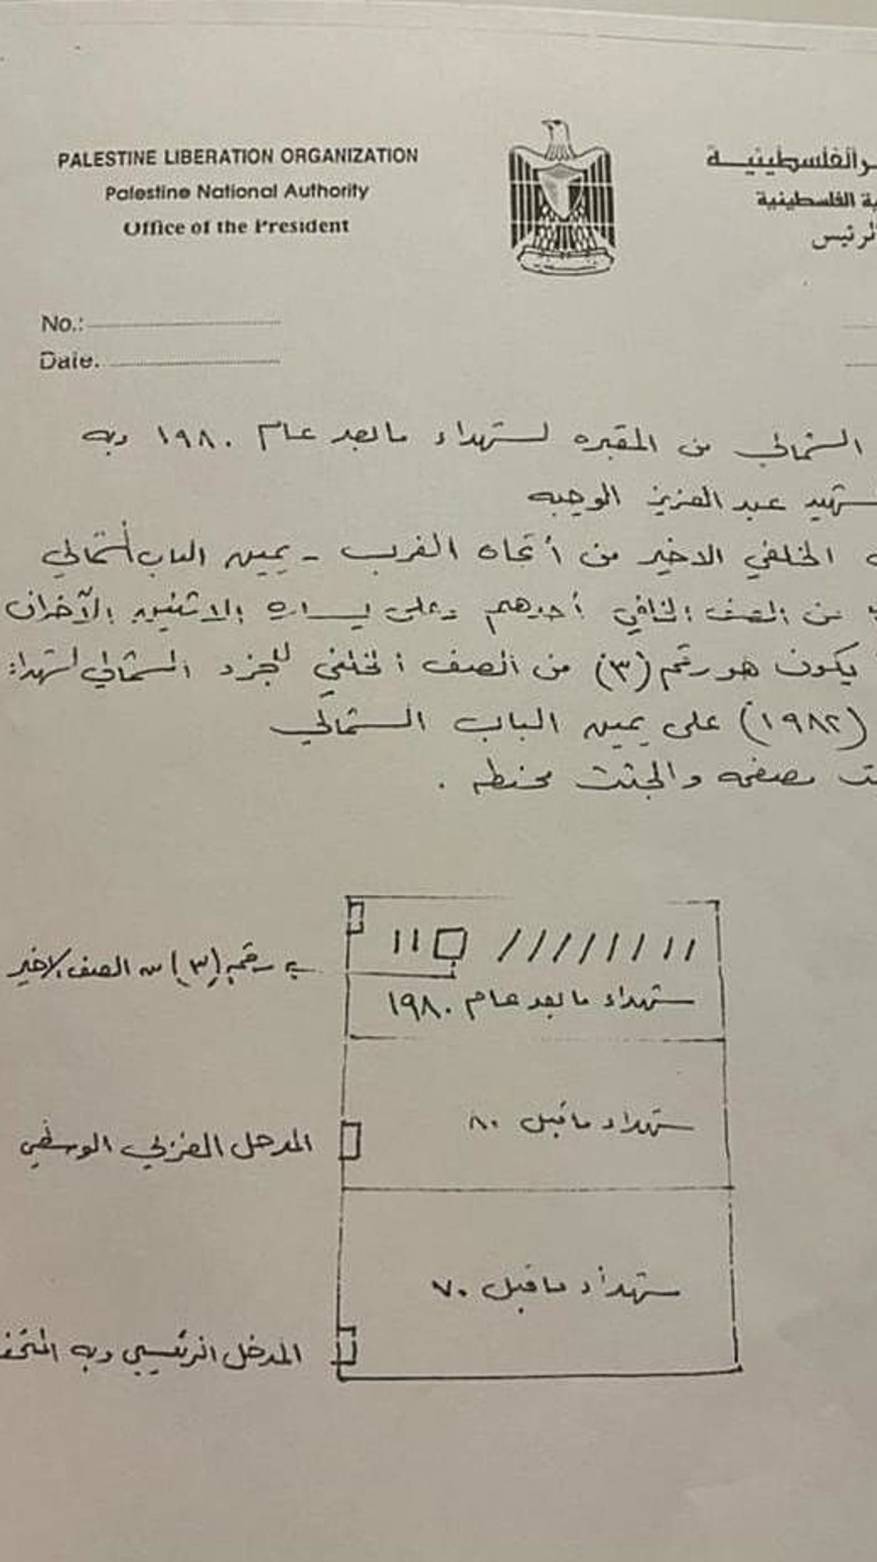 PALESTINE LIBERATION ORGANIZATION
Palestine National Authority
Office of the President
الفلسطينيـــة
الفلسطينية
الرئيس
No.:
Date.
الشمالي من المقبره لشهداء ما بعد عام ١٩٨٠ وبه
شهيد عبد العزيز الوجيه
الخلفي الاخير من أتجاه الغرب - يمين الباب الشمالي
من الصف الخلفي أحدهم وعلى يساره الاثنين الآخران
يكون هو رقم (٣) من الصف الخلفي للجزء الشمالي لشهداء
(١٩٨٢) على يمين الباب الشمالي
مصفحه والجثث محنطه .
رقم (٣) من الصف الاخير
شهداء ما بعد عام ١٩٨٠
شهداء ما قبل ٨٠
المدخل الغربي الوسطي
شهداء ما قبل ٧٠
المدخل الرئيسي وبه